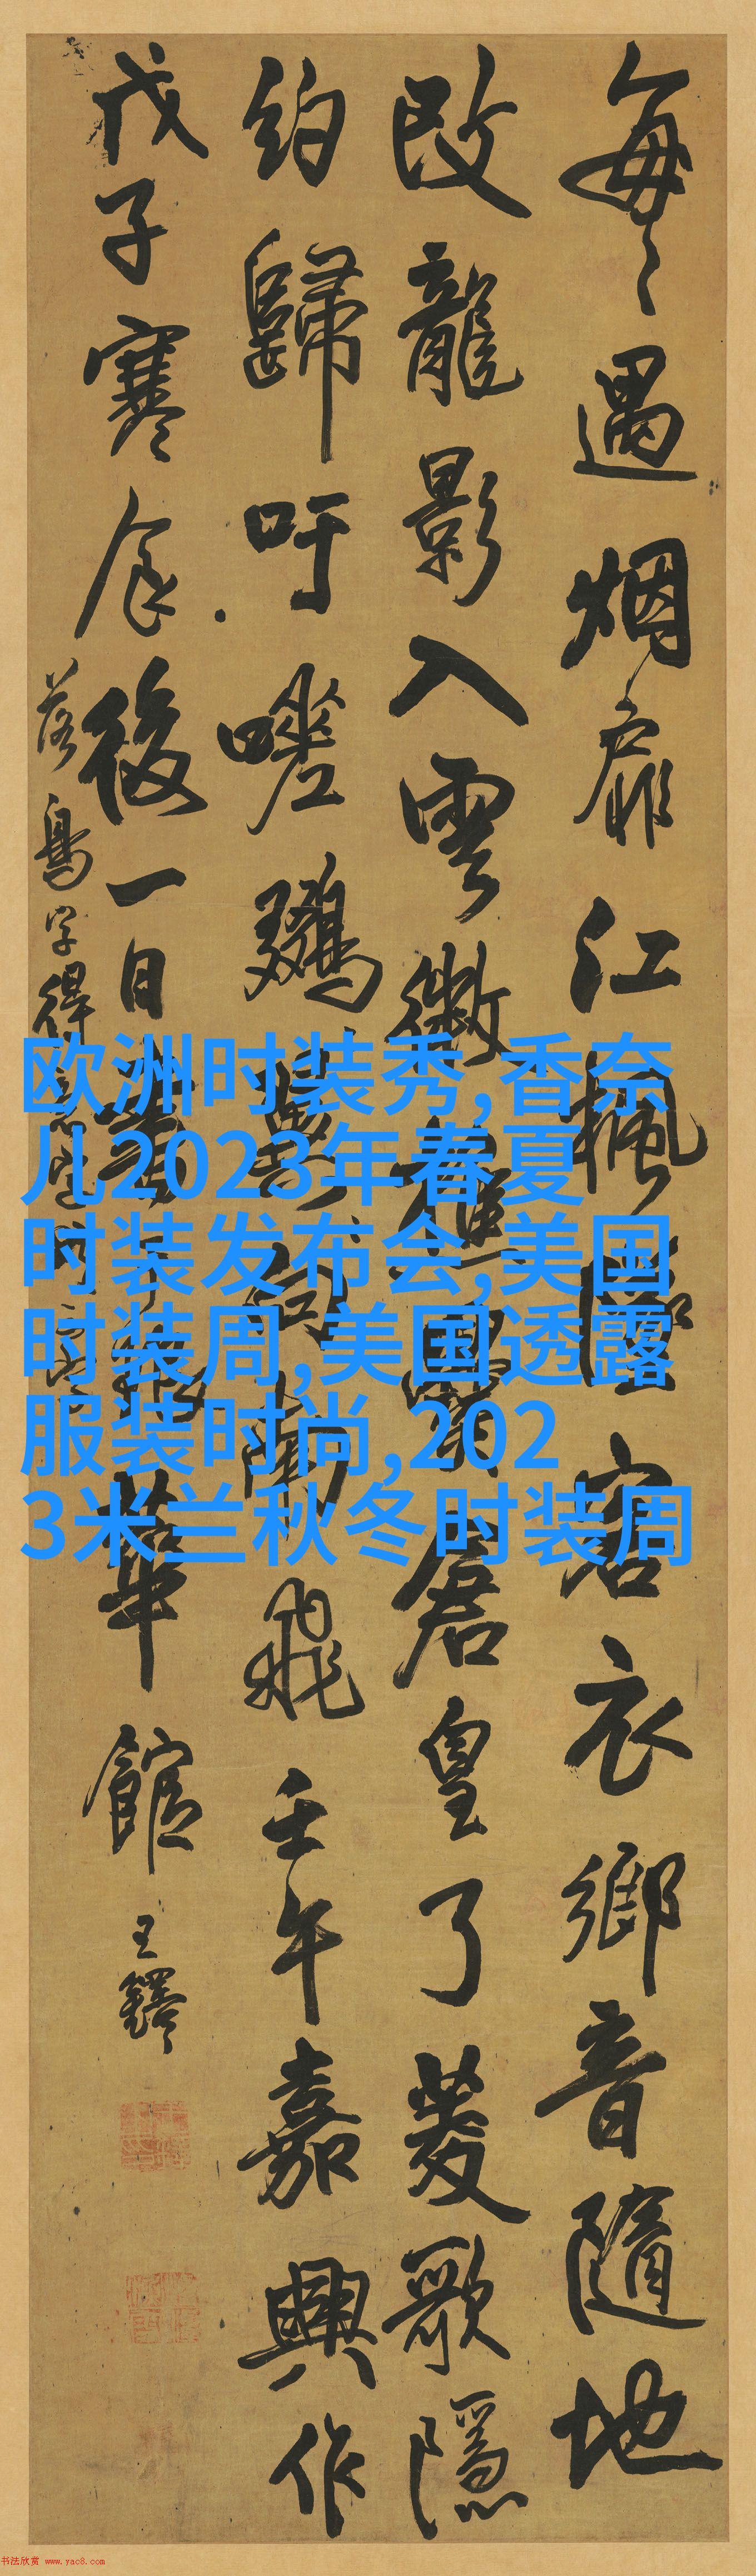 每々遇烟扉江楓客衣鄉音隨地
改龍影入雲微倉皇了菱歌隱
約歸吁嗟向南飛壬午嘉興作
戊子寒食後一日書華館王鐸
落鳥字得
欧洲时装秀,香奈
儿2023年春夏
时装发布会,美国
时装周,美国透露
服装时尚,202
3米兰秋冬时装周
书法欣赏 www.yac8.com